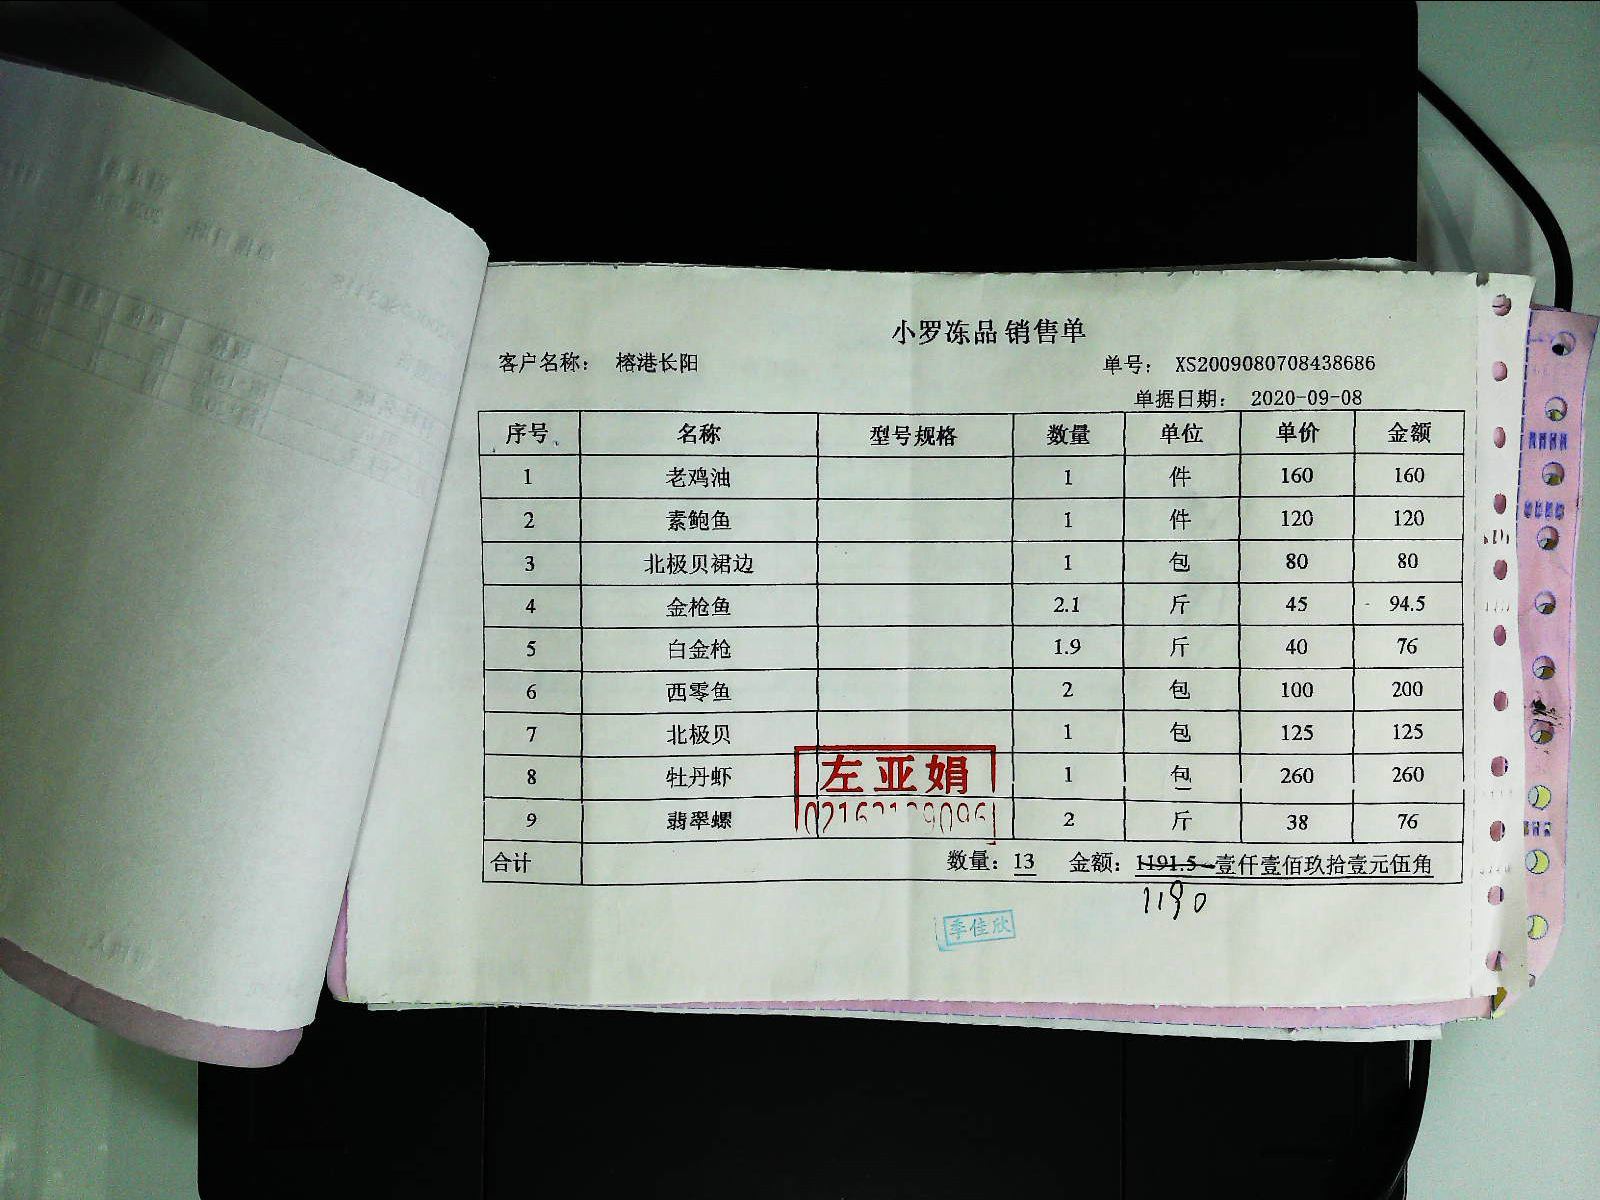 小罗冻品 销售单
客户名称： 榕港长阳 单号： XS2009080708438686
单据日期： 2020-09-08
序号 名称 型号规格 数量 单位 单价 金额
1 老鸡油 1 件 160 160
2 素鲍鱼 1 件 120 120
3 北极贝裙边 1 包 80 80
4 金枪鱼 2.1 斤 45 94.5
5 白金枪 1.9 斤 40 76
6 西零鱼 2 包 100 200
7 北极贝 1 包 125 125
8 牡丹虾 1 包 260 260
9 翡翠螺 2 斤 38 76
左亚娟
合计 数量：13 金额：1191.5 壹仟壹佰玖拾壹元伍角
1190
季佳欣